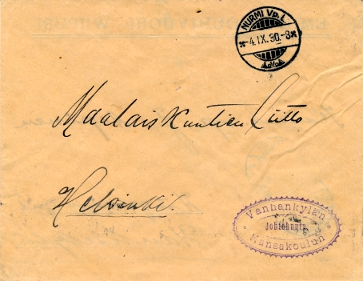 NURMI Vp. L.
4.IX.30.-8
Maalaiskuntien Liitto
Helsinki.
Vanhankylän
Johtokunta
Kansakoulun